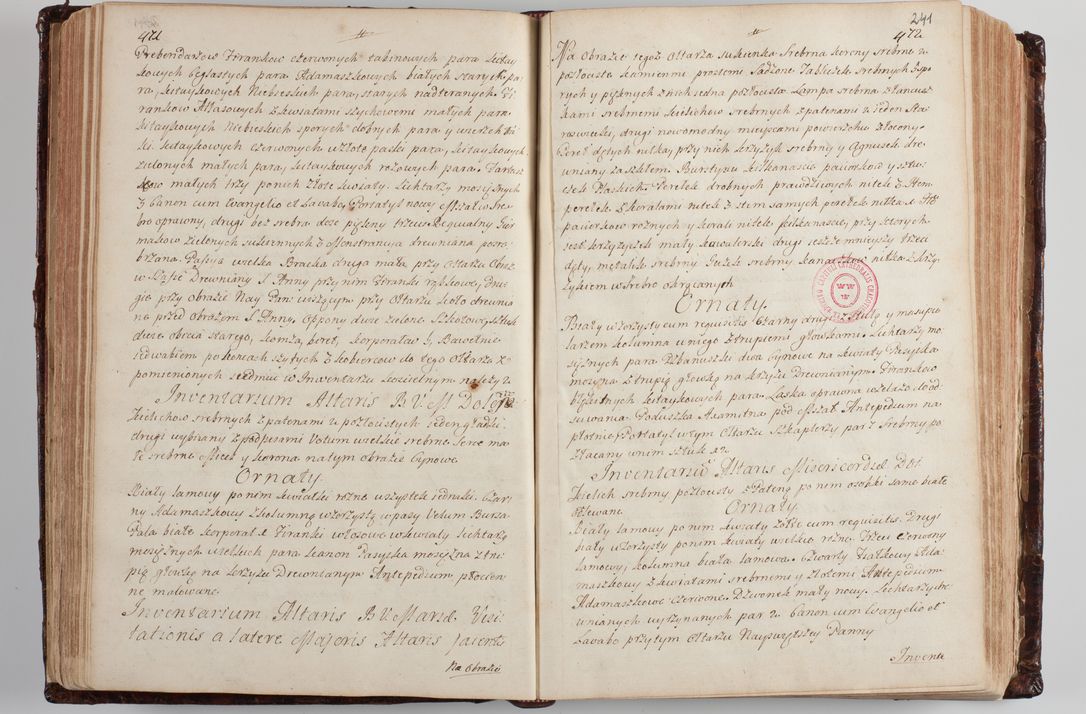 471
Prebendarzow Firankow czerwonych tabinowych para Kitay
kowych Ceglastych para Adamaszkowych białych starych pa
ra, kitaykowych Niebieskich para, starych nadteranych Fi
rankow Atłasowych z kwiatami szychowemi małych para
kitaykowych Niebieskich sporych dobnych para y wierzch
ki. kitaykowych czerwonych w złote paski para, kitaykowych
zielonych małych para, kitaykowych rożowych para,
małych trzy ponich złote kwiaty. Lichtarzy mosiężnych
3 Canon cum Evangelio et Lavabo, Portatyl nowy Mszał w Sre
bro oprawny, drugi bez srebra dosc piękny trzeci Requialny
zielonych sukiennych 3 Monstrancya drewniana posre
brzana. Passya wielka Bracka druga mała przy Ołtarzu Obraz
Drewniany S Anny przy nim Firanki rąbkowe, dru
gie przy obrazie Nay Pan: wiszącym przy Ołtarzu Koło drewnia
ne przed Obrazem S Anny, Oppony dwie zielone
dwie, obicia starego, komża, beret, korporałow 5, Bawełnic
iedwabiem po koncach szytych 2 kobiercow do tego Ołtarza
pomienionych siedmiu w Inwentarzu koscielnym należy 2
Inventarium Altaris B V M Dolo
Kielichow srebrnych z patenami w pozłocistych ieden gładki
drugi wybiany z podpisami Votum wielkie srebrne Serce ma
łe srebrne Miecz y korona na tym obrazie Cynowe
Ornaty
Biały lamowy ponim kwiatki rożne wszystek iednaki. Czar
ny Adamaszkowy z kolumną wzorzystą w pasy Velum Bursa
Pala białe korporał 1 Firanki włosowe w kwiaty lichtarzy
mosiężnych wielkich para kanon Passyka mosiężna z tru
pią głowką na krzyżu Drewnianym Antepedium płocien
ne malowane.
Inventarium Altaris B V Mariæ Visi
tationis a latere Majoris Altaris jacentis
Na Obrazie
241
472
Na Obrazie tegoż Ołtarza sukienka Srebrna korony srebrne 2
pozłociste kamienimi prostemi sadzone Tabliczek srebrnych 3 spo
rych y pięknych z nich iedna pozłocista Lampa srebrna z łancusz
kami srebrnemi kielichow srebrnych z patenami 2 ieden sta
roswiecki, drugi nowomodny mieyscami powierzchu złocony
Pereł dętych nitka, przy nich krzyżyk srebrny y Agnusek dre
wniany za szkłem Bursztynu kilkanascie paciorkow y sztu
czek Płaskich Perełek drobnych prawdziwych nitek 3 Item
perełek z koralami nitek 2 item samych perełek nitka 1
paciorkow rożnych y korali nitek kilkanascie, przy ktorych
iest krzyżyczek mały kawalerski drugi ieszcze mnieyszy trzeci
dęty, metalik srebrny Guzik srebrny kanaczkow nitka z krzy
żykiem w srebro okręcanych
Ornaty.
Biały wzorzysty cum requisitis Czarny drugi
larzem kolumna unego z trupiemi głowkami. lichtarzy mo
siężnych para Dzbanuszki dwa Cynowe na kwiaty Passyka
mosiężna z trupią głowką na krzyżu Drewnianym. Firankow
błękitnych kitaykowych para Laska oprawna w żelazo do od
suwania Poduszka Axamitna pod Mszał Antepedium na
płotnie, Portatyl w tym Ołtarzu Szkaplerzy par 7 srebrny po
złacany unim sztuk 12
Inventariu Altaris Misericordiæ Dei
Kielich srebrny pozłocisty z Pateną po nim osobki same białe
odlewane
Ornaty
Biały lamowy po nim kwiaty żołte cum requisitis. Drugi
biały wzorzysty ponim kwiaty wielkie rożne Trzeci czerwony
lamowy, kolumna biała lamowa. Czwarty Fiałkowy Ada
maszkowy z kwiatami srebrnemi y złotemi Antepedium
Adamaszkowe czerwone. Dzwonek mały nowy. Lichtarzy dre
wnianych wyrzynanych par 2 Canon cum Evangelio et
Lavabo przytym Ołtarzu Nayswiętszey Panny
Invent